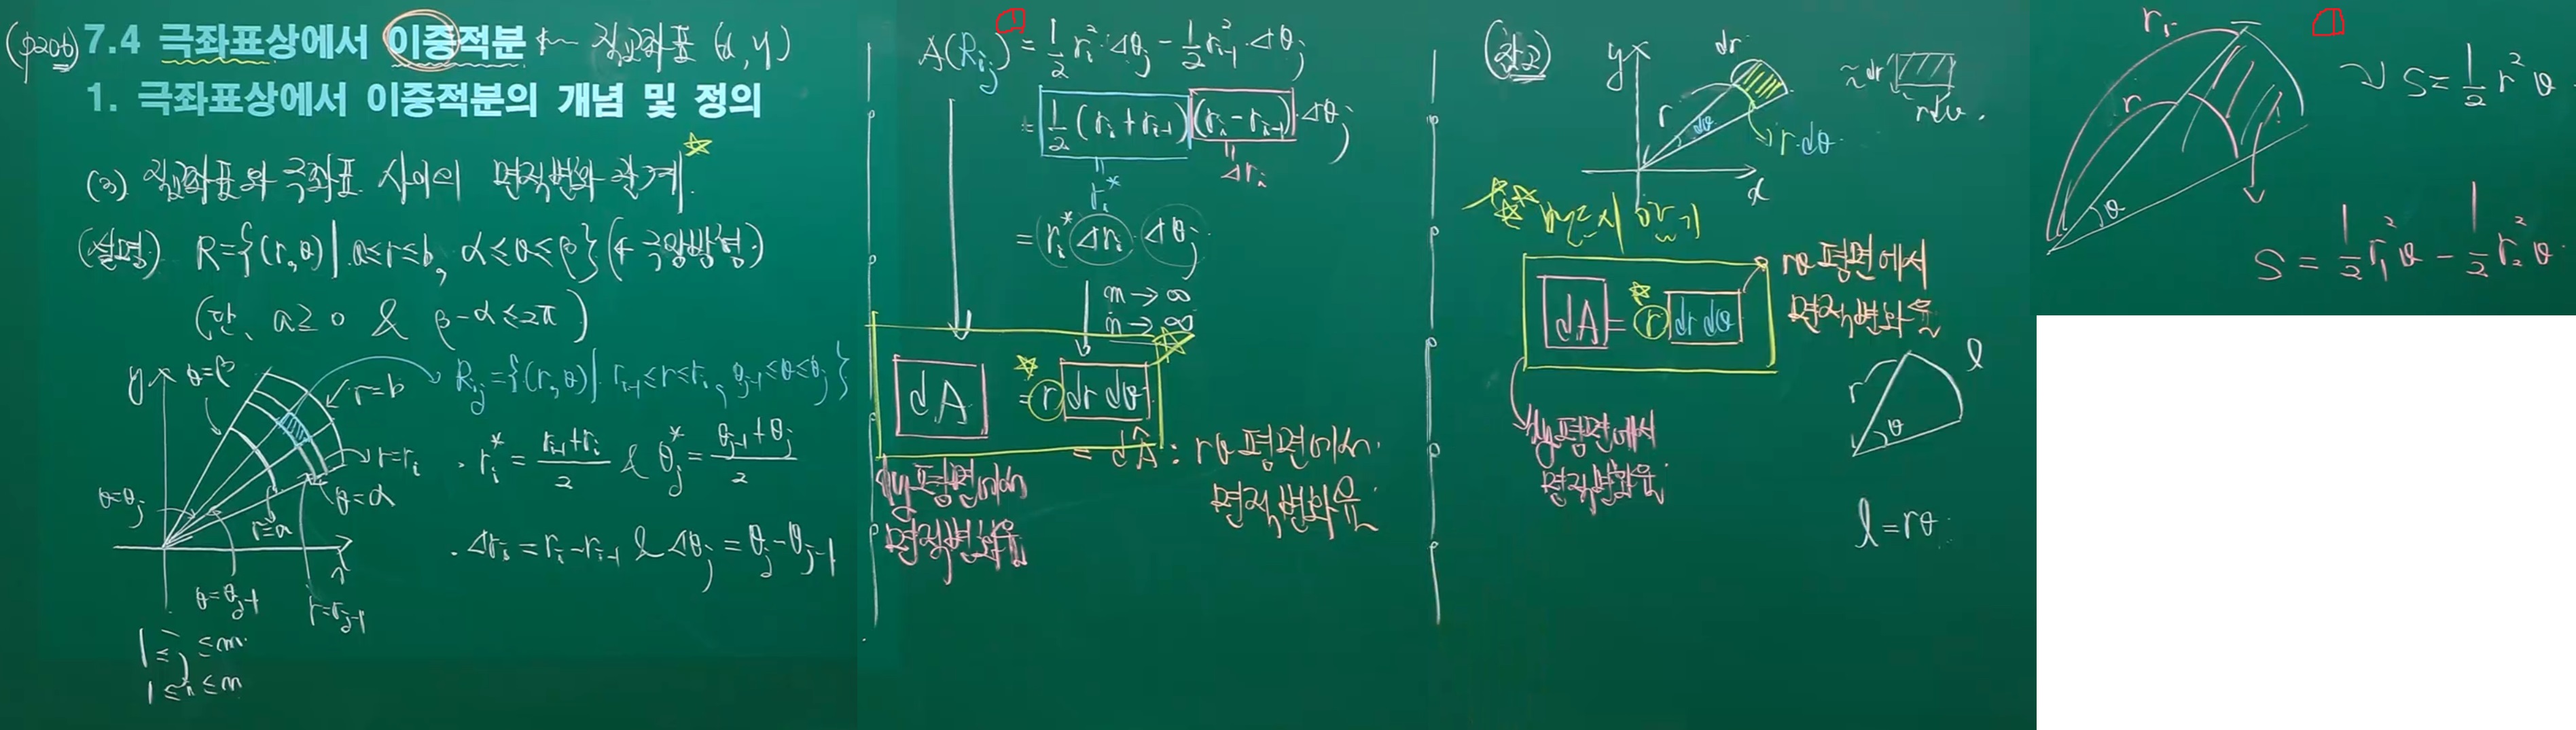 (p206) 7.4 극좌표상에서 이중적분 ← 직교좌표 (x, y)
1. 극좌표상에서 이중적분의 개념 및 정의
(3) 직교좌표와 극좌표 사이의 면적변화 관계 ☆
(설명) R={(r, θ)| a≤r≤b, α≤θ≤β} (← 극사방형)
(단, a≥0 & β-α≤2π)
y θ=β r=b
R_ij={(r, θ)| r_{i-1}≤r≤r_i, θ_{j-1}≤θ≤θ_j}
r=r_i
θ=α
θ=θ_j
r=a
x
θ=θ_{j-1}
r=r_{i-1}
· r_i* = (r_{i-1}+r_i)/2 & θ_j* = (θ_{j-1}+θ_j)/2
· Δr_i = r_i-r_{i-1} & Δθ_j = θ_j-θ_{j-1}
1≤j≤n
1≤i≤m
A(R_ij) ① = 1/2 r_i² · Δθ_j - 1/2 r_{i-1}² · Δθ_j
= 1/2 (r_i+r_{i-1}) (r_i-r_{i-1}) · Δθ_j
r_i* Δr_i
= r_i* Δr_i Δθ_j
m→∞
n→∞
dA = r dr dθ
= dÂ : rθ평면에서
면적변화율
xy평면에서
면적변화율
(참고)
y dr
r dθ
r·dθ
x
≈ dr
rdθ.
dA = r dr dθ
rθ평면에서
면적변화율
xy평면에서
면적변화율
r θ l
l = rθ
①
r₁
r
θ
→ S = 1/2 r² θ
S = 1/2 r₁² θ - 1/2 r₂² θ